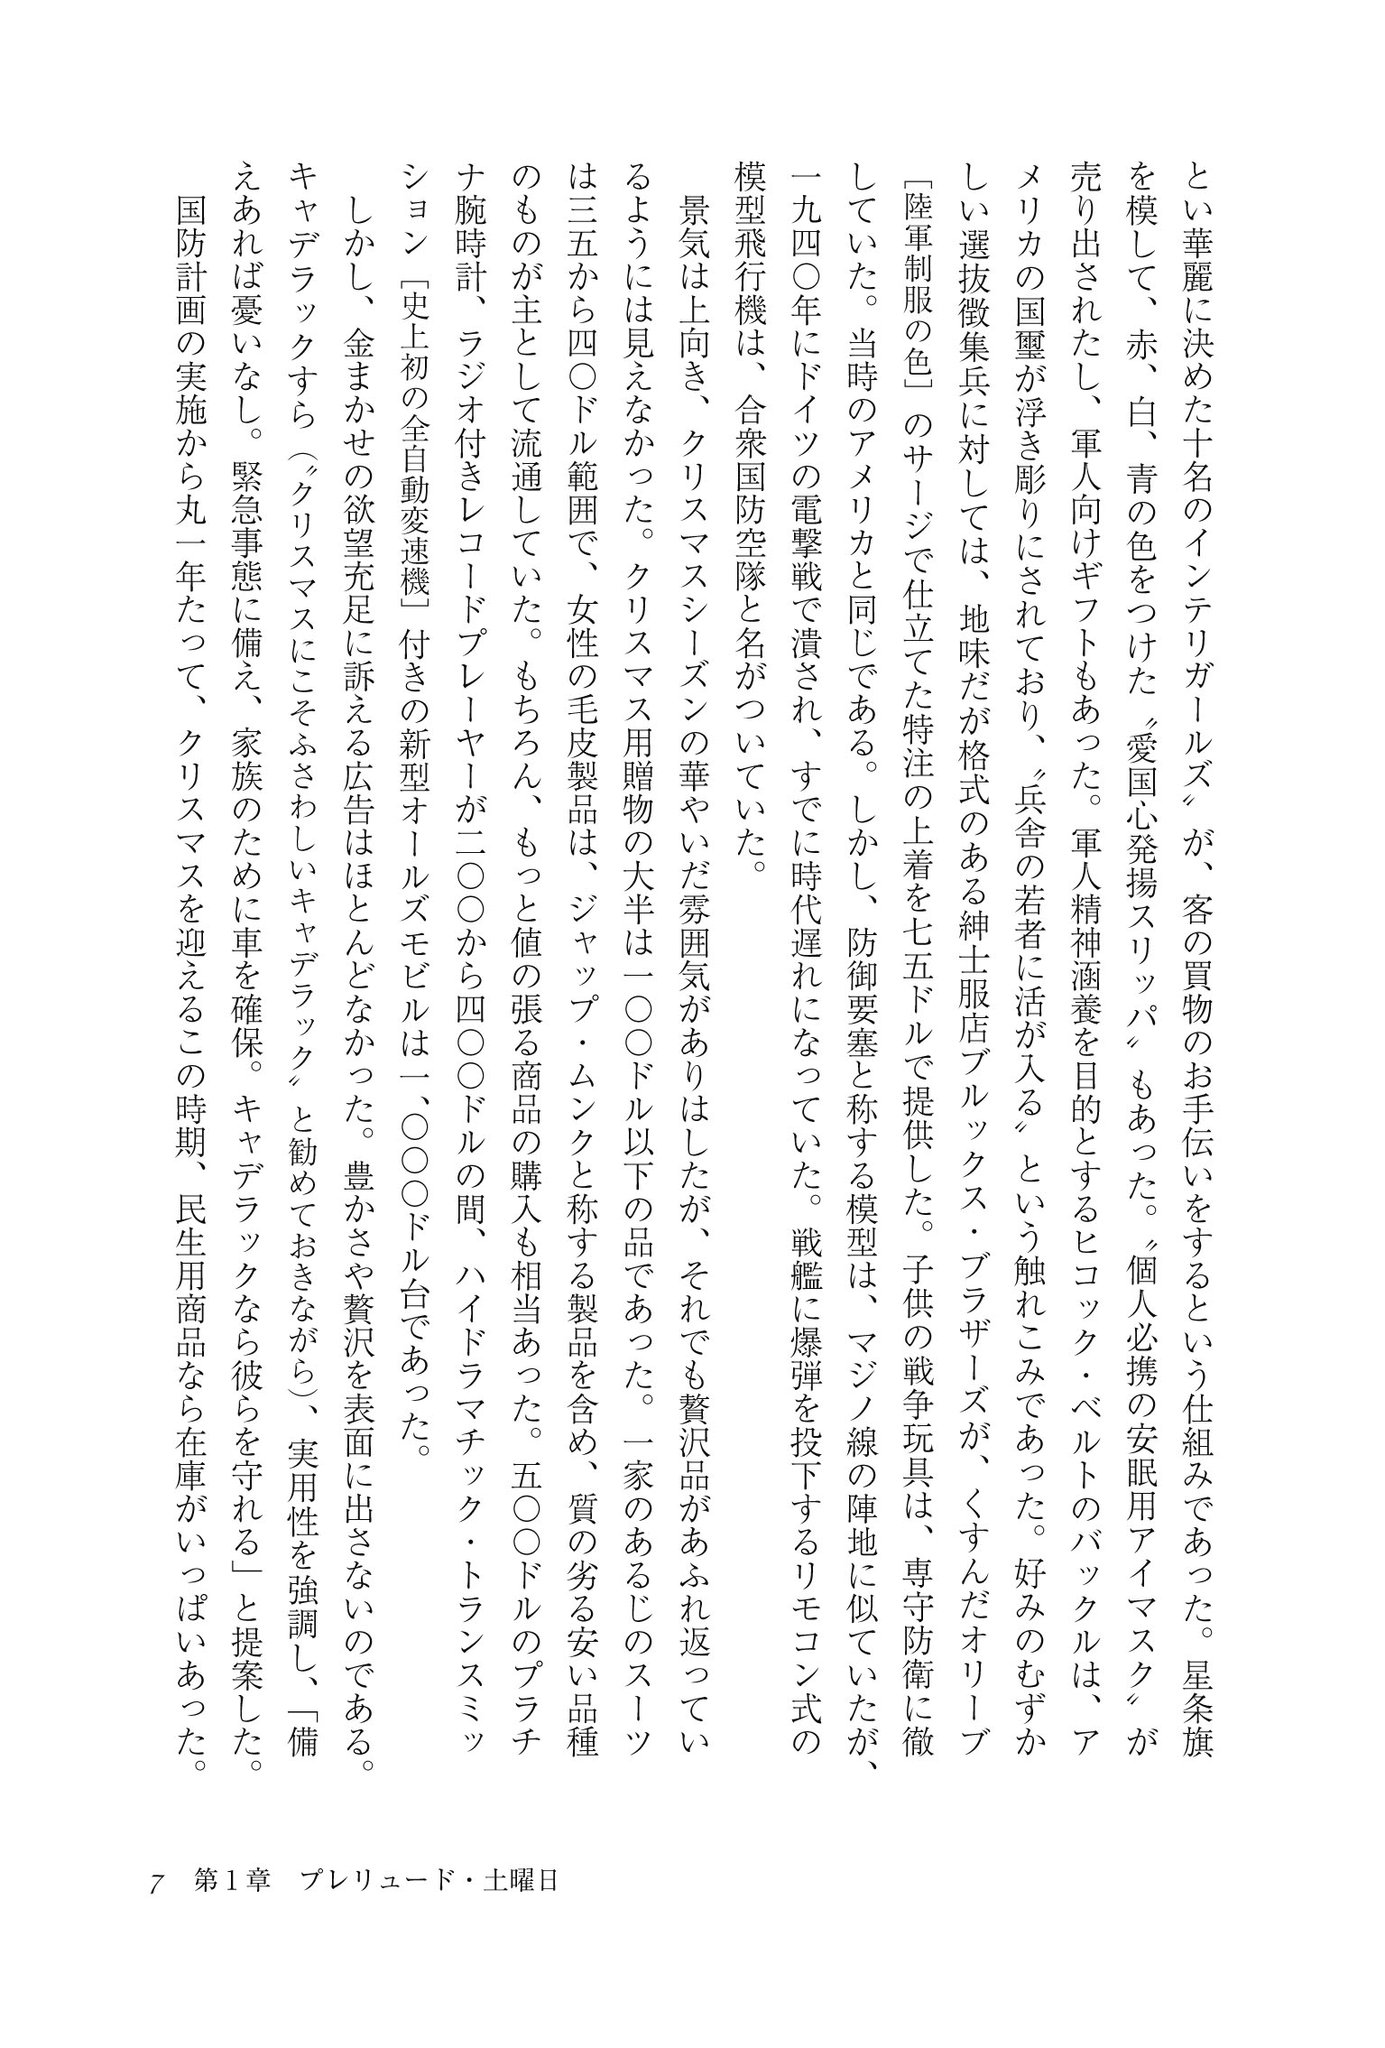 とい華麗に決めた十名のインテリガールズ〟が、客の買物のお手伝いをするという仕組みであった。星条旗
を模して、赤、白、青の色をつけた〝愛国心発揚スリッパ〟もあった。〝個人必携の安眠用アイマスク〟が
売り出されたし、軍人向けギフトもあった。軍人精神涵養を目的とするヒコック・ベルトのバックルは、ア
メリカの国璽が浮き彫りにされており、〝兵舎の若者に活が入る〟という触れこみであった。好みのむずか
しい選抜徴集兵に対しては、地味だが格式のある紳士服店ブルックス・ブラザーズが、くすんだオリーブ
［陸軍制服の色］のサージで仕立てた特注の上着を七五ドルで提供した。子供の戦争玩具は、専守防衛に徹
していた。当時のアメリカと同じである。しかし、防御要塞と称する模型は、マジノ線の陣地に似ていたが、
一九四〇年にドイツの電撃戦で潰され、すでに時代遅れになっていた。戦艦に爆弾を投下するリモコン式の
模型飛行機は、合衆国防空隊と名がついていた。
景気は上向き、クリスマスシーズンの華やいだ雰囲気がありはしたが、それでも贅沢品があふれ返ってい
るようには見えなかった。クリスマス用贈物の大半は一〇〇ドル以下の品であった。一家のあるじのスーツ
は三五から四〇ドル範囲で、女性の毛皮製品は、ジャップ・ムンクと称する製品を含め、質の劣る安い品種
のものが主として流通していた。もちろん、もっと値の張る商品の購入も相当あった。五〇〇ドルのプラチ
ナ腕時計、ラジオ付きレコードプレーヤーが二〇〇から四〇〇ドルの間、ハイドラマチック・トランスミッ
ション［史上初の全自動変速機］付きの新型オールズモビルは一、〇〇〇ドル台であった。
しかし、金まかせの欲望充足に訴える広告はほとんどなかった。豊かさや贅沢を表面に出さないのである。
キャデラックすら（〝クリスマスにこそふさわしいキャデラック〟と勧めておきながら）、実用性を強調し、「備
えあれば憂いなし。緊急事態に備え、家族のために車を確保。キャデラックなら彼らを守れる」と提案した。
国防計画の実施から丸一年たって、クリスマスを迎えるこの時期、民生用商品なら在庫がいっぱいあった。
7 第1章 プレリュード・土曜日